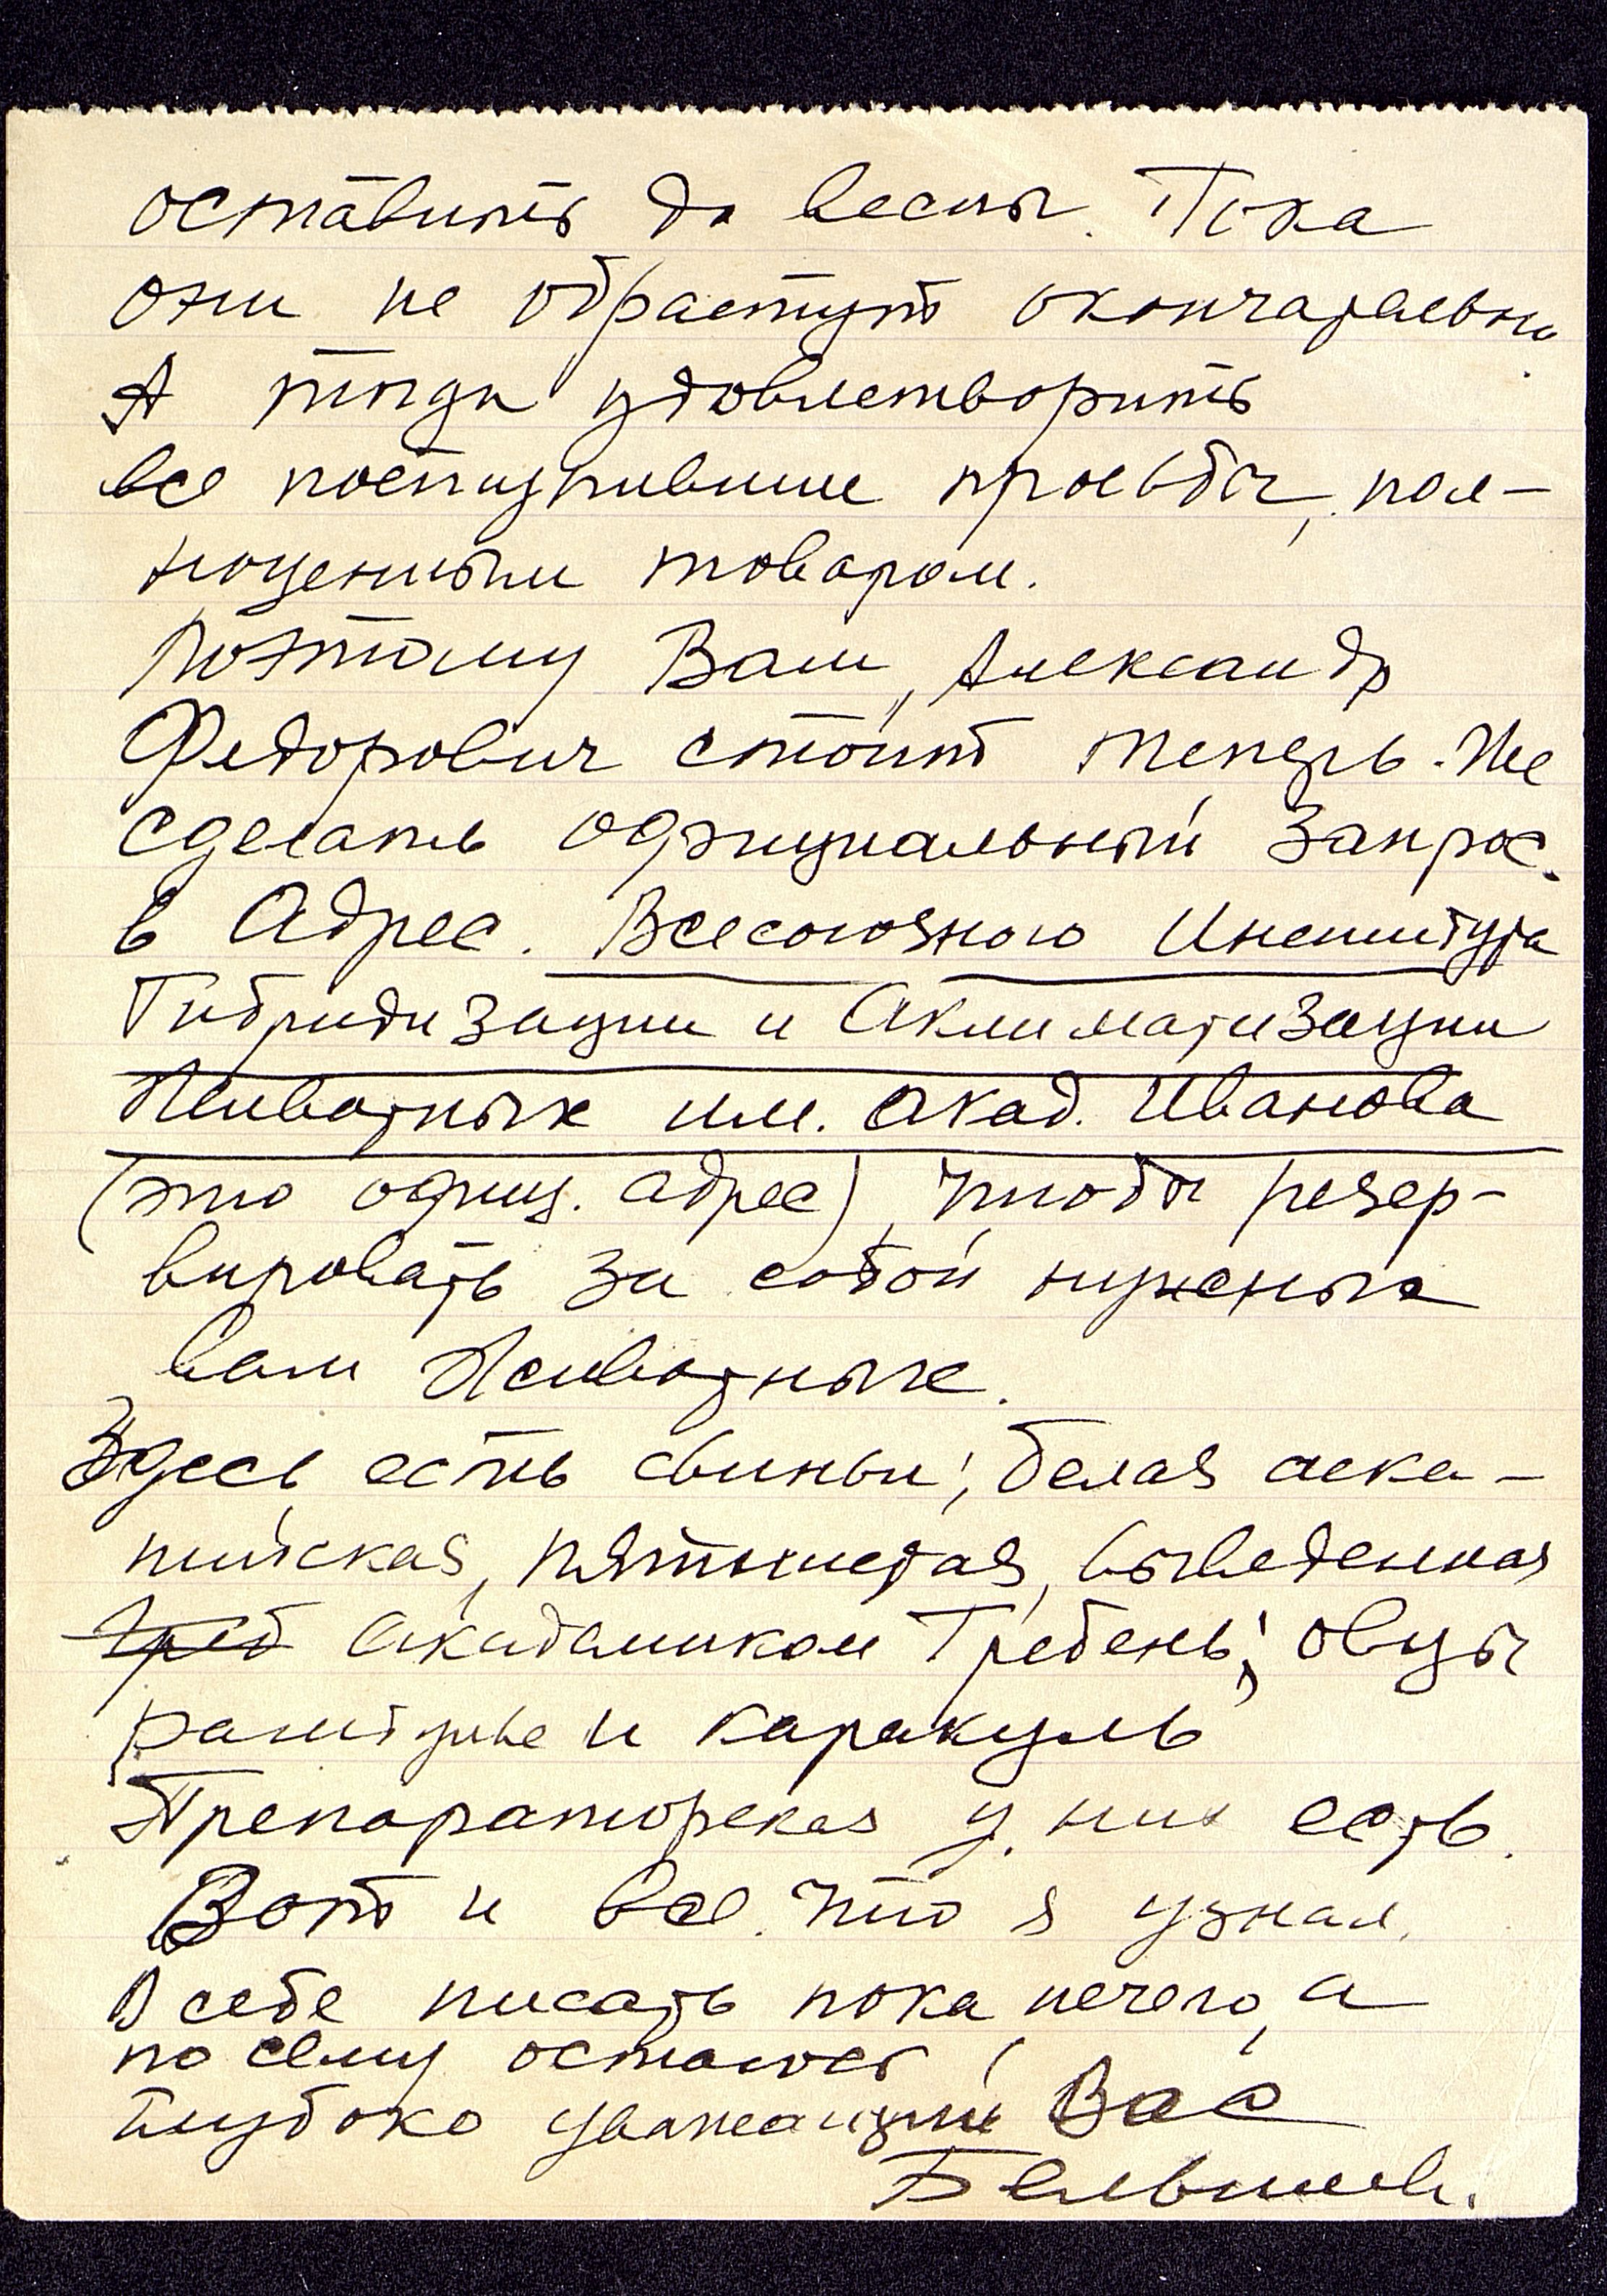 оставить до весны. Пока
они не обрастут окончательно.
А тогда удовлетворить
все поступившие просьбы, пол-
ноценным товаром.
Поэтому Вам, Александр
Федорович стоит теперь-же
сделать официальный запрос
в Адрес. Всесоюзного Института
Гибридизации и Аклиматизации
Животных им. Акад. Иванова
(это офиц. адрес), чтобы резер-
вировать за собой нужных
Вам Животных.
Здесь есть свиньи; белая аска-
нийская, пятнистая, выведенная
Академиком Гребень; овцы
рамбулье и каракуль
Препараторская у них есть.
Вот и все. что я узнал.
О себе писать пока нечего, а
по сему остаюсь
глубоко уважающий Вас